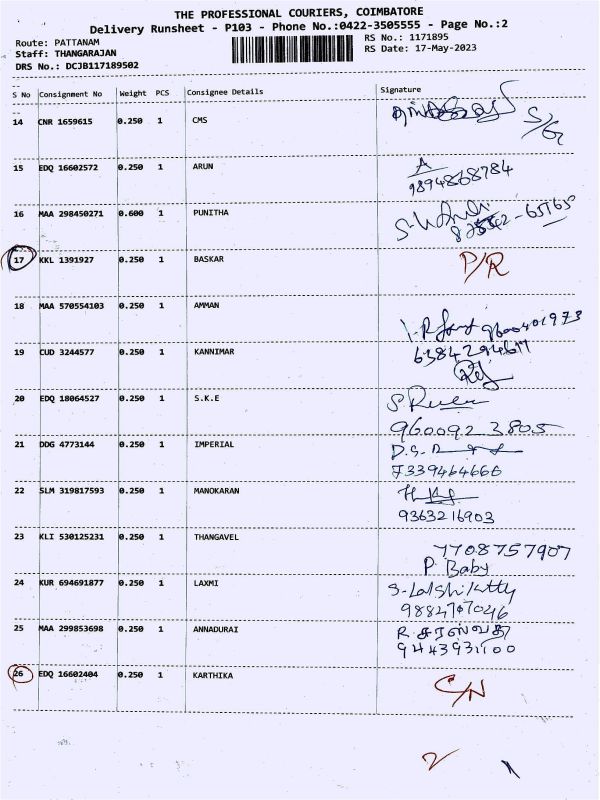 THE PROFESSIONAL COURIERS, COIMBATORE
Delivery Runsheet - P103 - Phone No.:0422-3505555 - Page No.:2
Route: PATTANAM
Staff: THANGARAJAN
DRS No.: DCJB117189502
RS No.: 1171895
RS Date: 17-May-2023
S No Consignment No Weight PCS Consignee Details Signature
14 CNR 1659615 0.250 1 CMS
S/G
15 EDQ 16602572 0.250 1 ARUN A
9894868784
16 MAA 298450271 0.600 1 PUNITHA
17 KKL 1391927 0.250 1 BASKAR P/R
18 MAA 570554103 0.250 1 AMMAN
9600401973
19 CUD 3244577 0.250 1 KANNIMAR
20 EDQ 18064527 0.250 1 S.K.E
960092 3805
21 DDG 4773144 0.250 1 IMPERIAL
7339464666
22 SLM 319817593 0.250 1 MANOKARAN
9363216903
23 KLI 530125231 0.250 1 THANGAVEL 7708757907
P Baby
24 KUR 694691877 0.250 1 LAXMI
9884707046
25 MAA 299853698 0.250 1 ANNADURAI R சரஸ்வதி
9443931100
26 EDQ 16602404 0.250 1 KARTHIKA C/N
2 1